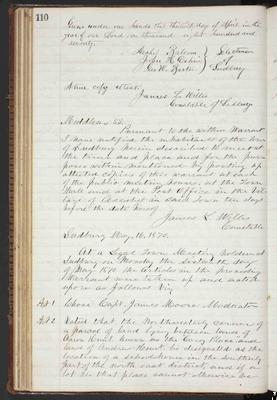 110
Given under our hands this thirtieth day of April in the
year of our Lord one thousand eight hundred and
seventy.
Selectmen
of
Sudbury
A true copy Attest.
James L. Willis
Constable of Sudbury
Middlesex SS.
Pursuant to the within Warrant
I have notified the inhabitants of the town
of Sudbury herein described to meet at
the time and place and for the purposes
within mentioned by posting up
attested copies of this warrant at each
of the public meeting houses, at the Town
Hall and at the Post Office in the Village
of in said town ten days
before the date hereof
James L. Willis
Constable
Sudbury May 16, 1870.
At a Legal Town Meeting holden at
Sudbury on Monday the sixteenth day
of May 1870 the articles in the preceding
Warrant were taken up and acted
upon as follows viz
Art 1 Chose Capt. James Moore Moderator
Art 2 Voted that the Northwesterly corner of
a parcel of land lying between lands of
Aaron Hunt known as the Place and
land of Andrew Hunt be designated as the
location of a schoolhouse in the southerly
part of the north east district, and if a
lot in that place cannot otherwise be